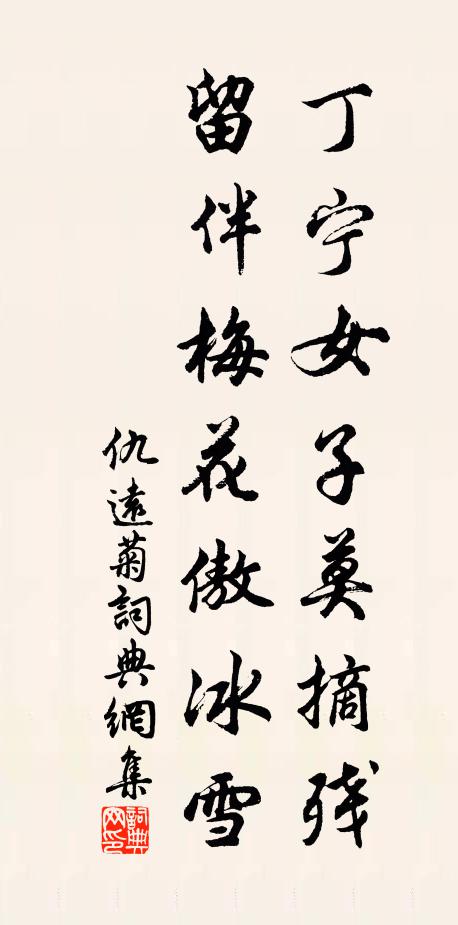 丁宁女子莫摘残
留伴梅花傲冰雪
仇遠菊詞典網集
詞典網印